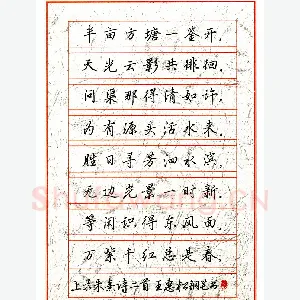 半亩方塘一鉴开，
天光云影共徘徊。
问渠那得清如许，
为有源头活水来。
胜日寻芳泗水滨，
无边光景一时新。
等闲识得东风面，
万紫千红总是春。
上录朱熹诗二首 王惠松钢笔书